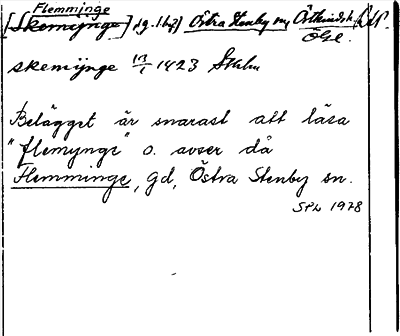 Flemminge
[Skemynge] Östra Stenby sn, Östkinds h
ÖGl.
skemijnge 13/1 1423
Belägget är snarast att läsa
"flemynge" o. avser då
Flemminge, gd, Östra Stenby sn.
SPL 1978